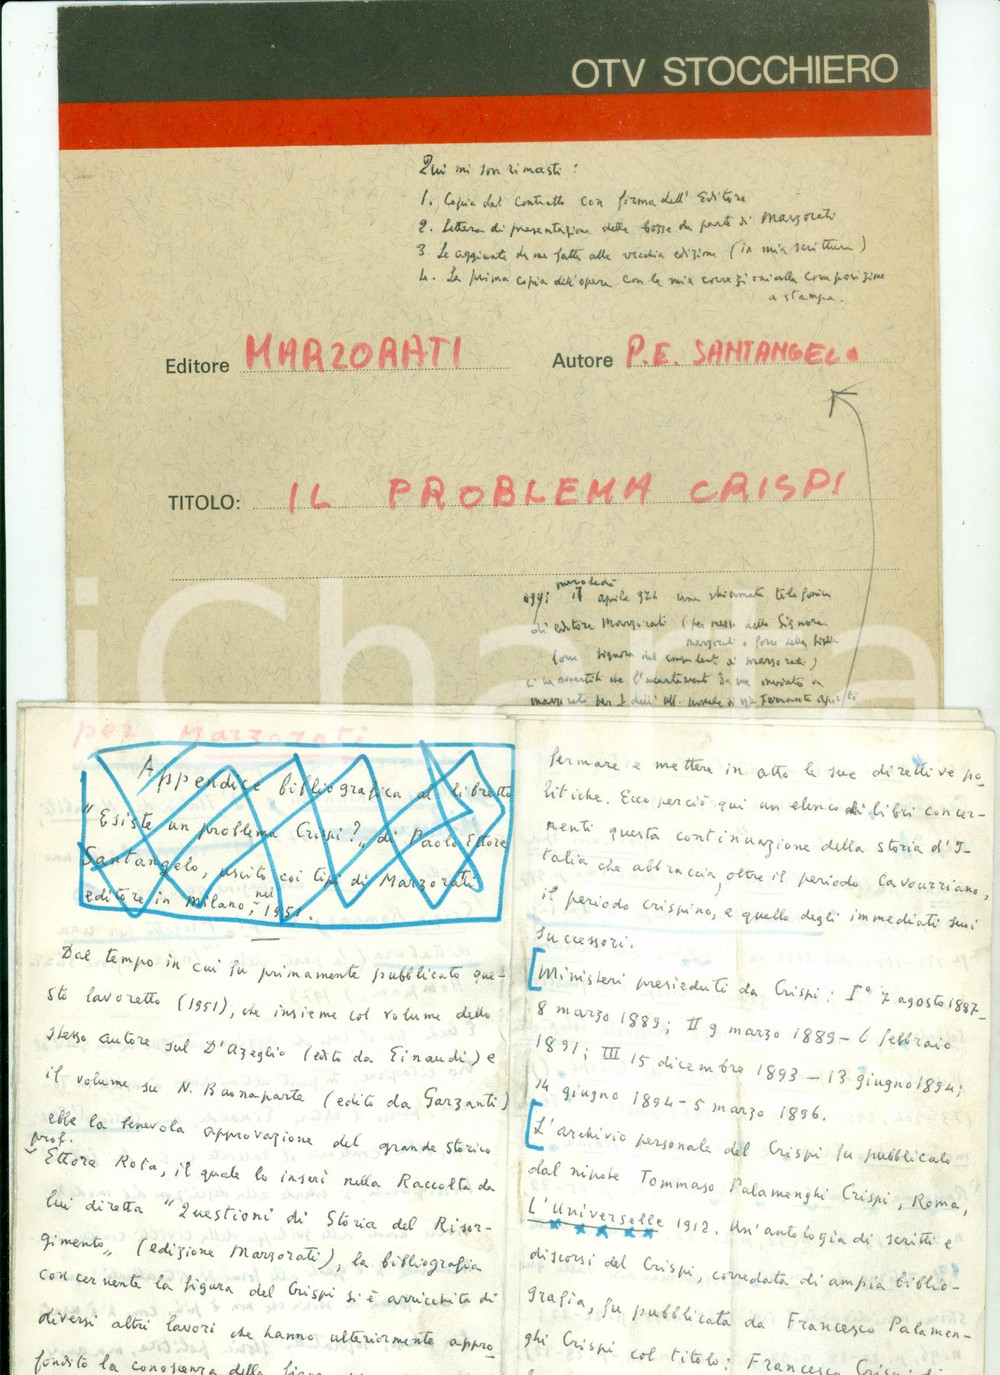 OTV STOCCHIERO
Qui mi son rimasti:
1. Copia del contratto con firma dell'Editore
2. Lettera di presentazione delle bozze da parte di Marzorati
3 Le aggiunte da me fatte alla vecchia edizione (in mia scrittura)
4. La prima copia dell'opera con le mie correzioni alla composizione
a stampa.
Editore MARZORATI
Autore P.E. SANTANGELO
TITOLO: IL PROBLEMA CRISPI
mercoledì
oggi 17 aprile 974 una chiamata telefonica
di editore Marzorati (per mezzo della Signora
iCharta
per Marzorati
Appendice bibliografica al libretto
"Esiste un problema Crispi?" di Paolo Ettore
Santangelo, uscito coi tipi di Marzorati
editore in Milano, nel 1951.
Dal tempo in cui fu primamente pubblicato que-
sto lavoretto (1951), che insieme col volume dello
stesso autore sul D'Azeglio (edito da Einaudi) e
il volume su N. Buonaparte (edito da Garzanti)
ebbe la benevola approvazione del grande storico
prof.
Ettore Rota, il quale lo inserì nella Raccolta da
lui diretta "Questioni di Storia del Risor-
gimento" (edizione Marzorati), la bibliografia
concernente la figura del Crispi si è arricchita di
diversi altri lavori che hanno ulteriormente appro-
fondito la conoscenza della figura
fermare e mettere in atto le sue direttive po-
litiche. Ecco perciò qui un elenco di libri concer-
nenti questa continuazione della storia d'I-
talia che abbraccia, oltre il periodo Cavourriano,
il periodo crispino, e quello degli immediati suoi
successori.
Ministeri presieduti da Crispi: I° 7 agosto 1887-
8 marzo 1889; II 9 marzo 1889 - 6 febbraio
1891; III 15 dicembre 1893 - 13 giugno 1894;
14 giugno 1894 - 5 marzo 1896.
L'archivio personale del Crispi fu pubblicato
dal nipote Tommaso Palamenghi Crispi, Roma,
L'Universelle 1912. Un'antologia di scritti e
discorsi del Crispi, corredata di ampia biblio-
grafia, fu pubblicata da Francesco Palamen-
ghi Crispi col titolo: Francesco Crispi